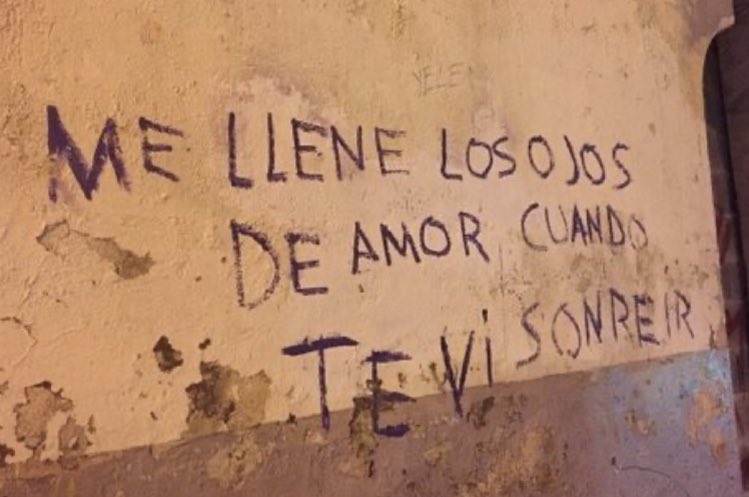 YELE
ME LLENE LOS OJOS
DE AMOR CUANDO
TE Vi SONREIR